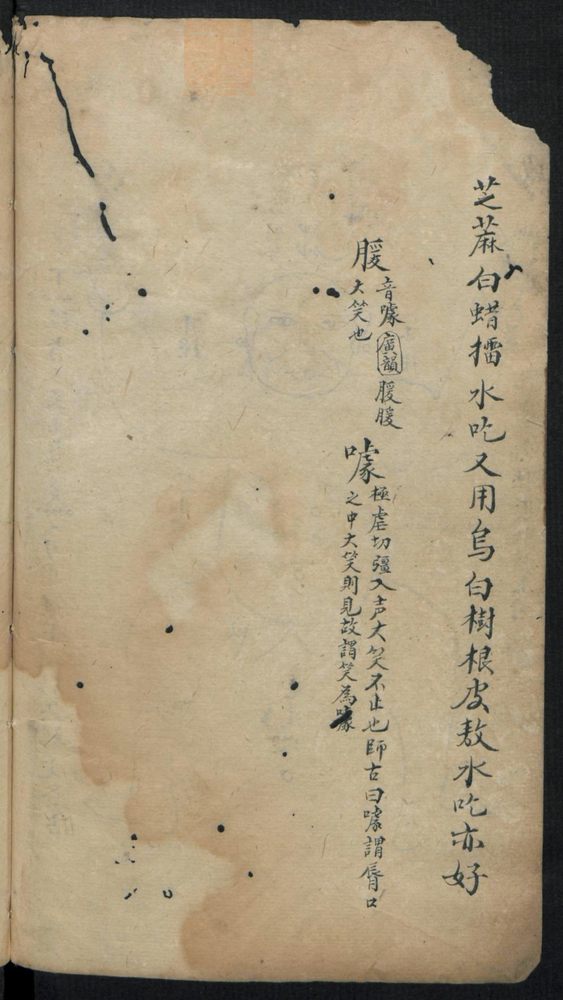 芝蔴白蜡擂水吃又用烏白樹根皮敖水吃亦好
音噱廣韻
大笑也
噱
極虐切彊入声大笑不止也師古曰噱謂脣口
之中大笑則見故謂笑為噱